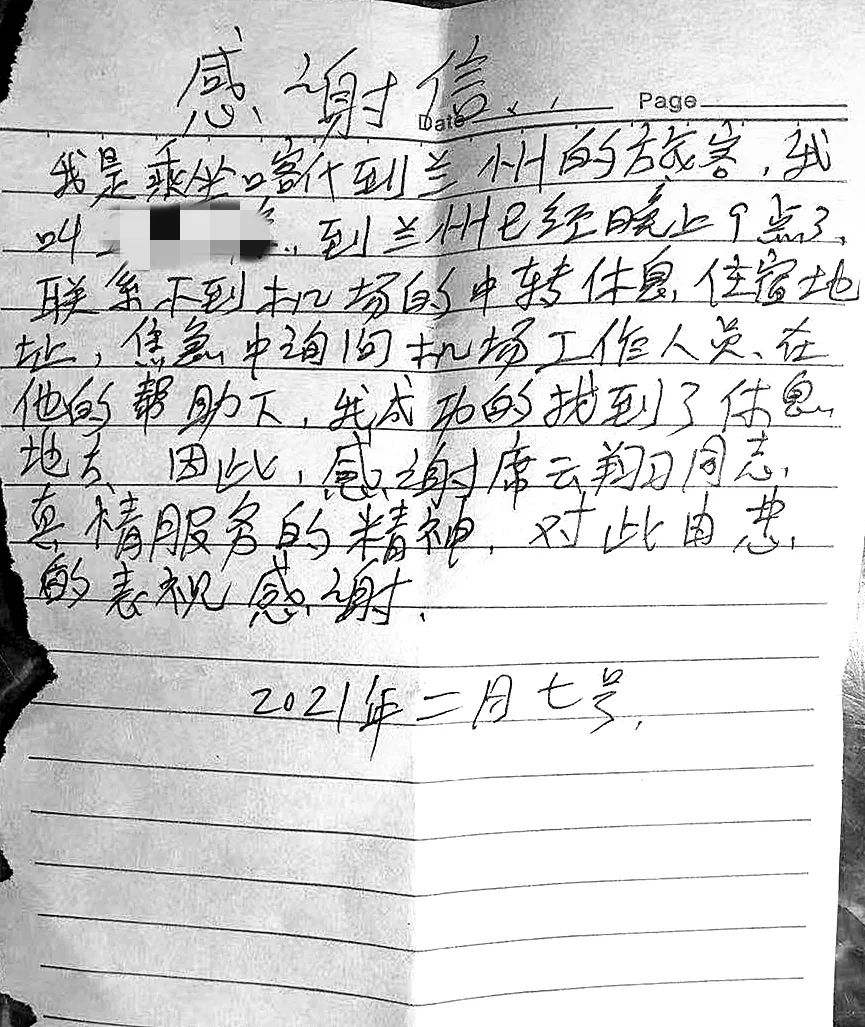 感谢信
Date Page
我是乘坐喀什到兰州的旅客，我
叫 到兰州已经晚上9点了，
联系不到机场的中转休息，住宿地
址，焦急中询问机场工作人员、在
他的帮助下，我成功的找到了休息
地方、因此，感谢席云翔同志，
真情服务的精神，对此由衷
的表视感谢，
2021年二月七号，